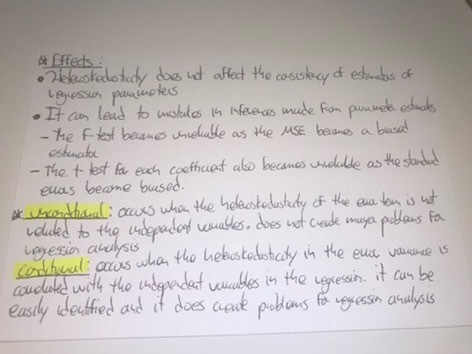 * Effects:
• Heteroskedasticity does not affect the consistency of estimates of
regression parameters
• It can lead to mistakes in inferences made from parameter estimates
- The F-test becomes unreliable as the MSE becomes a biased
estimator
- The t test for each coefficient also becomes unreliable as the standard
errors become biased.
* unconditional: occurs when the heteroskedasticity of the error term is not
related to the independent variables. does not create major problems for
regression analysis
conditional: occurs when the heteroskedasticity in the error variance is
correlated with the independent variables in the regression. it can be
easily identified and it does create problems for regression analysis